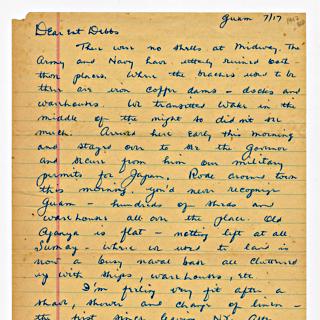 Guam 7/17
Dearest Debbs
There were no shells at Midway. The
Army and Navy have utterly ruined both
these places. Where the beaches used to be
there are iron coffer dams - docks and
warehouses. We transitted Wake in the
middle of the night so didn't see
much. Arrived here early this morning
and stayed over to see the Governor
and secure from him our military
permits for Japan. Rode around town
this morning. You'd never recognize
Guam - hundreds of sheds and
warehouses all over the place. Old
Aganya is flat - nothing left at all
Sumay - where we used to land is
now a busy naval base all cluttered
up with ships, warehouses, etc.
I'm feeling very fit after a
shave, shower and change of linen -
the first since leaving N.Y. After